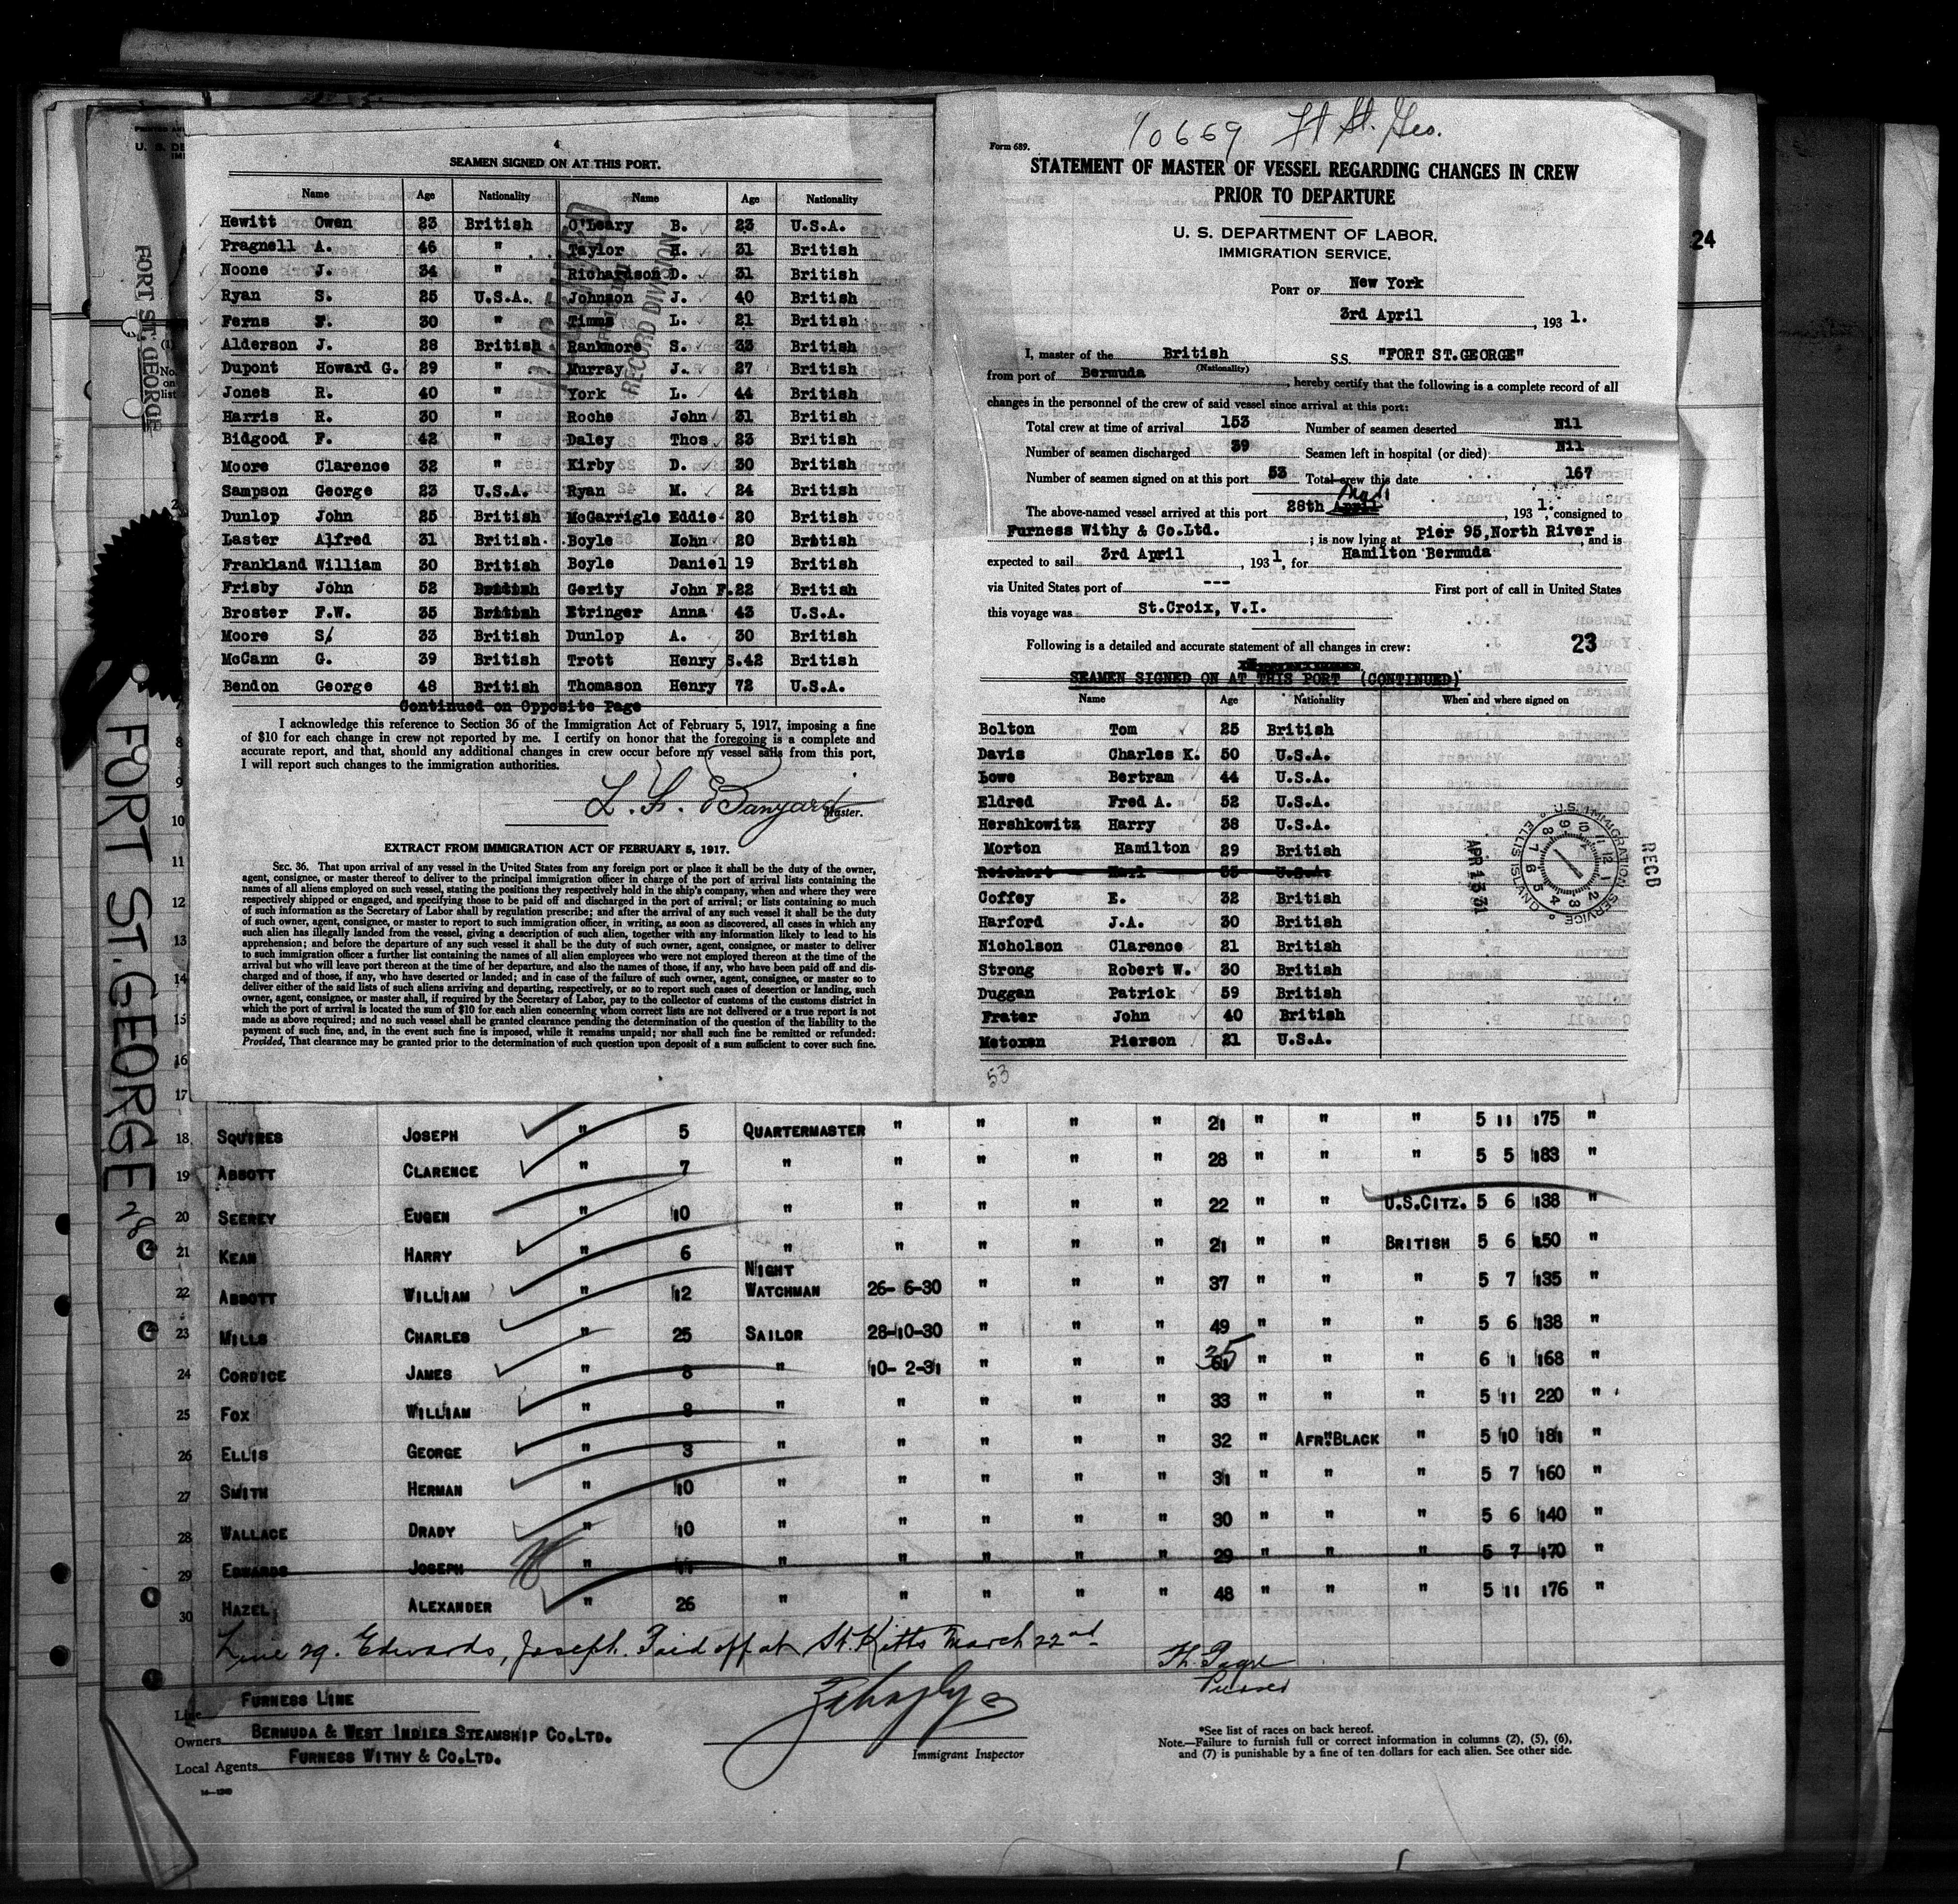 4
SEAMEN SIGNED ON AT THIS PORT.
Name Age Nationality Name Age Nationality
Hewitt Owen 23 British O'Leary B. 23 U.S.A.
Pragnell A. 46 " Taylor H. 31 British
Noone J. 34 " Richardson D. 31 British
Ryan S. 25 U.S.A. Johnson J. 40 British
Ferns F. 30 " Timms L. 21 British
Alderson J. 28 British Rankmore S. 33 British
Dupont Howard G. 29 " Murray J. 27 British
Jones R. 40 " York L. 44 British
Harris R. 30 " Roche John 31 British
Bidgood F. 42 " Daley Thos 23 British
Moore Clarence 32 " Kirby D. 30 British
Sampson George 23 U.S.A. Ryan M. 24 British
Dunlop John 25 British McGarrigle Eddie 20 British
Laster Alfred 31 British Boyle 20 British
Frankland William 30 British Boyle Daniel 19 British
Frisby John 52 British Gerity John F. 22 British
Broster F.W. 35 British Etringer Anna 43 U.S.A.
Moore S/ 33 British Dunlop A. 30 British
McCann G. 39 British Trott Henry S. 42 British
Bendon George 48 British Thomason Henry 72 U.S.A.
Continued on Opposite Page
I acknowledge this reference to Section 36 of the Immigration Act of February 5, 1917, imposing a fine
of $10 for each change in crew not reported by me. I certify on honor that the foregoing is a complete and
accurate report, and that, should any additional changes in crew occur before my vessel sails from this port,
I will report such changes to the immigration authorities.
L. H. Banyard
Master.
EXTRACT FROM IMMIGRATION ACT OF FEBRUARY 5, 1917.
SEC. 36. That upon arrival of any vessel in the United States from any foreign port or place it shall be the duty of the owner,
agent, consignee, or master thereof to deliver to the principal immigration officer in charge of the port of arrival lists containing the
names of all aliens employed on such vessel, stating the positions they respectively hold in the ship's company, when and where they were
respectively shipped or engaged, and specifying those to be paid off and discharged in the port of arrival; or lists containing so much
of such information as the Secretary of Labor shall by regulation prescribe; and after the arrival of any such vessel it shall be the duty
of such owner, agent, consignee, or master to report to such immigration officer, in writing, as soon as discovered, all cases in which any
such alien has illegally landed from the vessel, giving a description of such alien, together with any information likely to lead to his
apprehension; and before the departure of any such vessel it shall be the duty of such owner, agent, consignee, or master to deliver
to such immigration officer a further list containing the names of all alien employees who were not employed thereon at the time of the
arrival but who will leave port thereon at the time of her departure, and also the names of those, if any, who have been paid off and dis-
charged and of those, if any, who have deserted or landed; and in case of the failure of such owner, agent, consignee, or master so to
deliver either of the said lists of such aliens arriving and departing, respectively, or so to report such cases of desertion or landing, such
owner, agent, consignee, or master shall, if required by the Secretary of Labor, pay to the collector of customs of the customs district in
which the port of arrival is located the sum of $10 for each alien concerning whom correct lists are not delivered or a true report is not
made as above required; and no such vessel shall be granted clearance pending the determination of the question of the liability to the
payment of such fine, and, in the event such fine is imposed, while it remains unpaid; nor shall such fine be remitted or refunded:
Provided, That clearance may be granted prior to the determination of such question upon deposit of a sum sufficient to cover such fine.
RECORD DIVISION
90669 Ft St. Geo.
Form 689.
STATEMENT OF MASTER OF VESSEL REGARDING CHANGES IN CREW
PRIOR TO DEPARTURE
U. S. DEPARTMENT OF LABOR,
IMMIGRATION SERVICE,
24
PORT OF New York
3rd April, 1931.
I, master of the British S.S. "FORT ST.GEORGE"
(Nationality)
from port of Bermuda, hereby certify that the following is a complete record of all
changes in the personnel of the crew of said vessel since arrival at this port:
Total crew at time of arrival 153 Number of seamen deserted Nil
Number of seamen discharged 39 Seamen left in hospital (or died) Nil
Number of seamen signed on at this port 53 Total crew this date 167
The above-named vessel arrived at this port 28th April Mar, 1931. consigned to
Furness Withy & Co.Ltd.; is now lying at Pier 95,North River, and is
expected to sail 3rd April, 1931, for Hamilton Bermuda
via United States port of --- First port of call in United States
this voyage was St.Croix, V.I.
Following is a detailed and accurate statement of all changes in crew: 23
SEAMEN SIGNED ON AT THIS PORT (CONTINUED)
Name Age Nationality When and where signed on
Bolton Tom 25 British
Davis Charles K. 50 U.S.A.
Lowe Bertram 44 U.S.A.
Eldred Fred A. 52 U.S.A.
Hershkowitz Harry 38 U.S.A.
Morton Hamilton 29 British
Reichert Karl 35 U.S.A.
Coffey E. 32 British
Harford J.A. 30 British
Nicholson Clarence 21 British
Strong Robert W. 30 British
Duggan Patrick 59 British
Frater John 40 British
Metoxen Pierson 21 U.S.A.
53
APR 13 31
U.S. IMMIGRATION SERVICE ELLIS ISLAND
RECD
FORT ST. GEORGE
FORT ST. GEORGE
28
8
9
10
11
12
13
14
15
16
17
18 SQUIRES JOSEPH " 5 QUARTERMASTER " " " " 21 " " " 5 11 175 "
19 ABBOTT CLARENCE " 7 " " " " " 28 " " " 5 5 183 "
20 SEEREY EUGEN " 10 " " " " " 22 " " U.S.CITZ. 5 6 138 "
21 KEAN HARRY " 6 " " " " " 21 " " BRITISH 5 6 150 "
22 ABBOTT WILLIAM " 12 NIGHT WATCHMAN 26- 6-30 " " " 37 " " " 5 7 135 "
23 MILLS CHARLES " 25 SAILOR 28-10-30 " " " 49 " " " 5 6 138 "
24 CORDICE JAMES " 8 " 10- 2-31 " " " 35 " " " 6 1 168 "
25 FOX WILLIAM " 8 " " " " " 33 " " " 5 11 220 "
26 ELLIS GEORGE " 3 " " " " " 32 " AFR. BLACK " 5 10 181 "
27 SMITH HERMAN " 10 " " " " " 31 " " " 5 7 160 "
28 WALLACE DRADY " 10 " " " " " 30 " " " 5 6 140 "
29 EDWARDS JOSEPH " 11 " " " " " 29 " " " 5 7 170 "
30 HAZEL ALEXANDER " 26 " " " " " 48 " " " 5 11 176 "
Line 29. Edwards, Joseph. Paid off at St. Kitts March 22nd
Purser
Line FURNESS LINE
Owners BERMUDA & WEST INDIES STEAMSHIP CO.LTD.
Local Agents FURNESS WITHY & CO.LTD.
Immigrant Inspector
*See list of races on back hereof.
Note.—Failure to furnish full or correct information in columns (2), (5), (6),
and (7) is punishable by a fine of ten dollars for each alien. See other side.